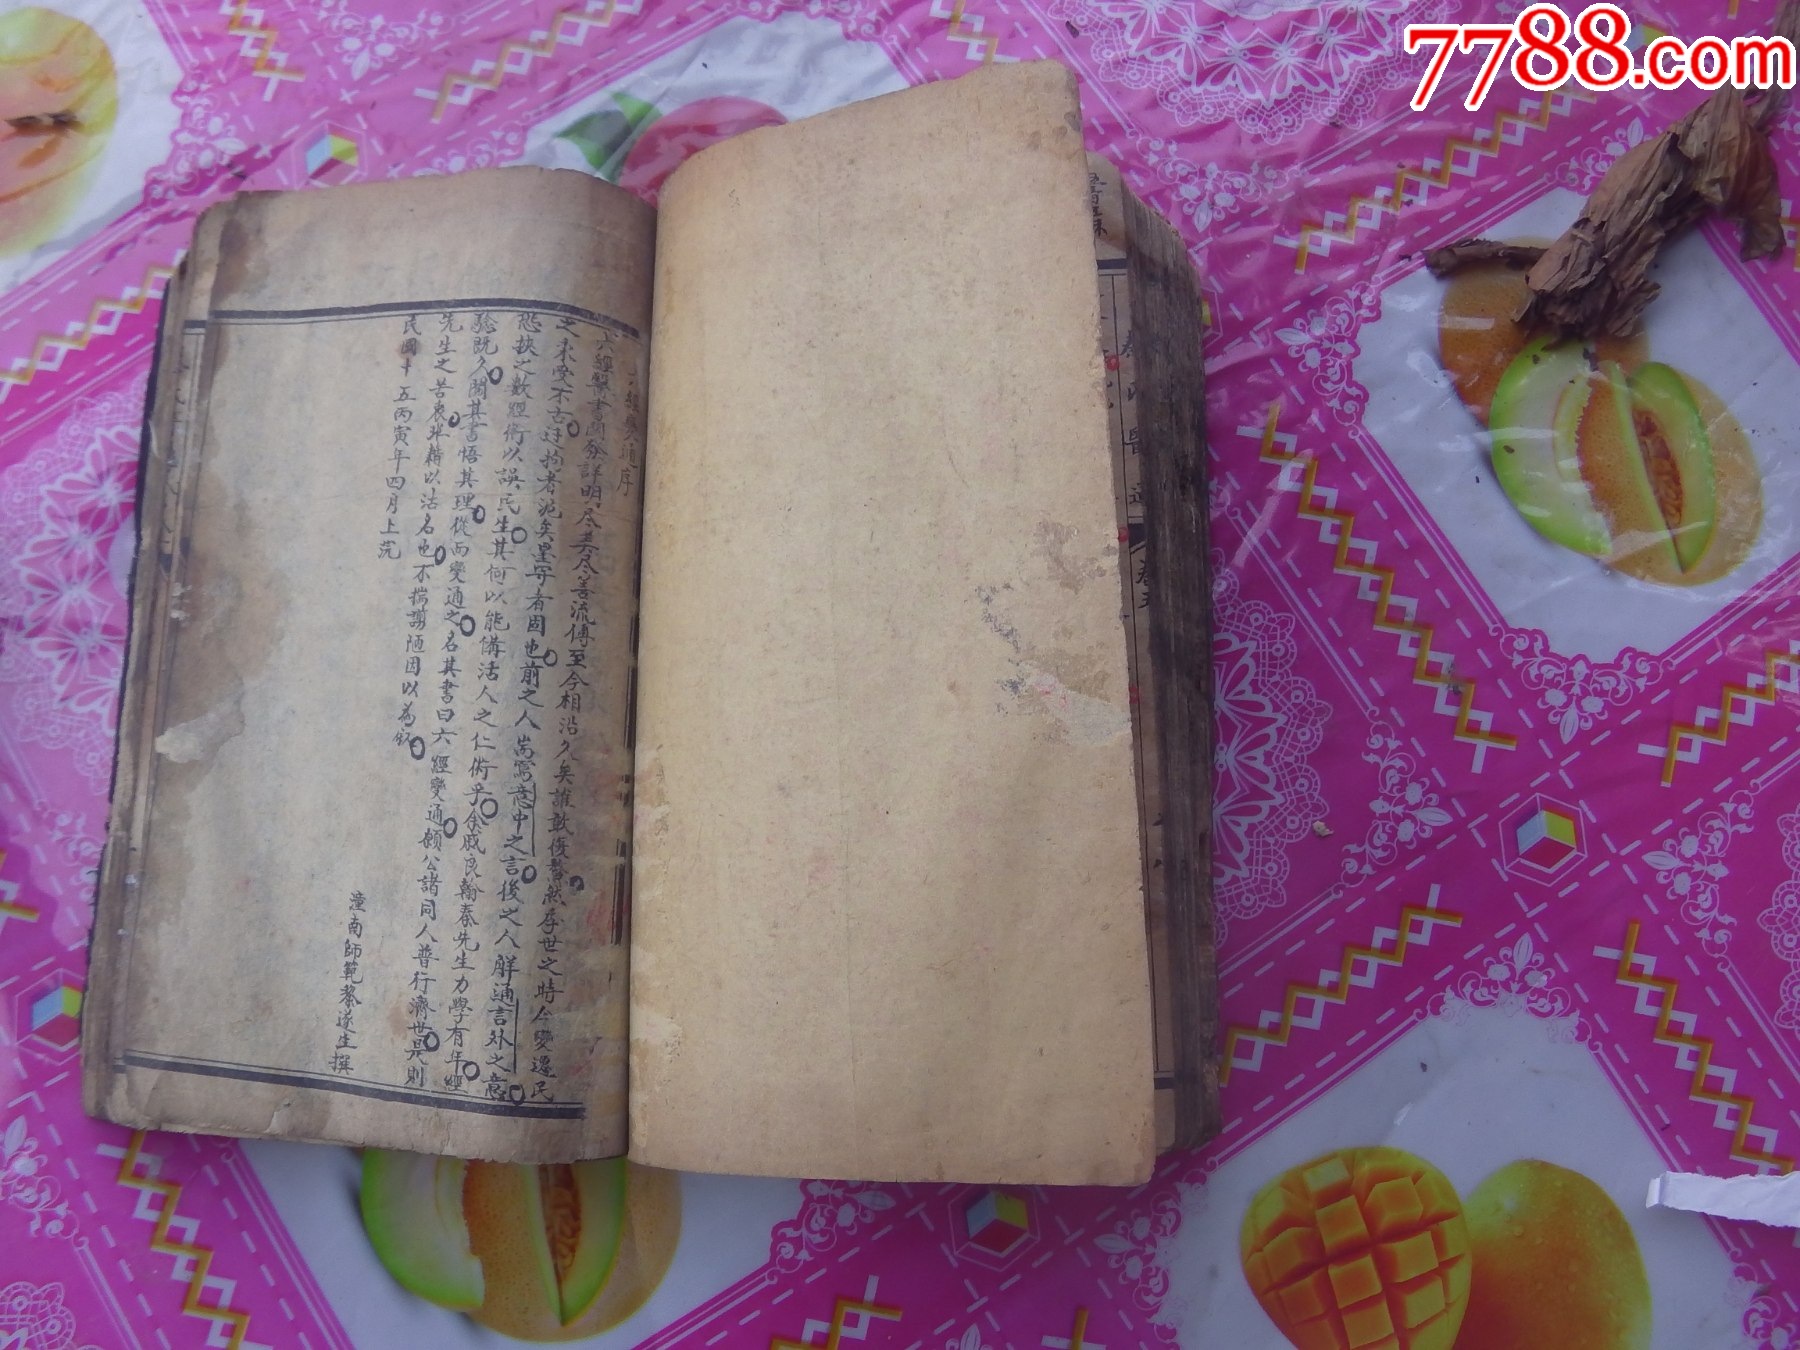 7788.com
六經變通序
六經醫書闡發詳明尽美尽善流傳至今相沿久矣誰敢復贅然存世之時今變遷民
之禀受不古迂拘者泥矣墨守者固也前之人耑寫意中之言後之人解通言外之意
恐挟之數經術以誤民生其何以能備活人之仁術乎余戚良翰秦先生力學有年經
驗既久閱其書悟其理從而變通之名其書曰六經變通顧公諸同人普行濟世是則
先生之苦衷非藉以沽名也不揣謭陋因以為叙
民國十五丙寅年四月上浣
潼南師範黎遂生撰
秦氏醫通
卷五